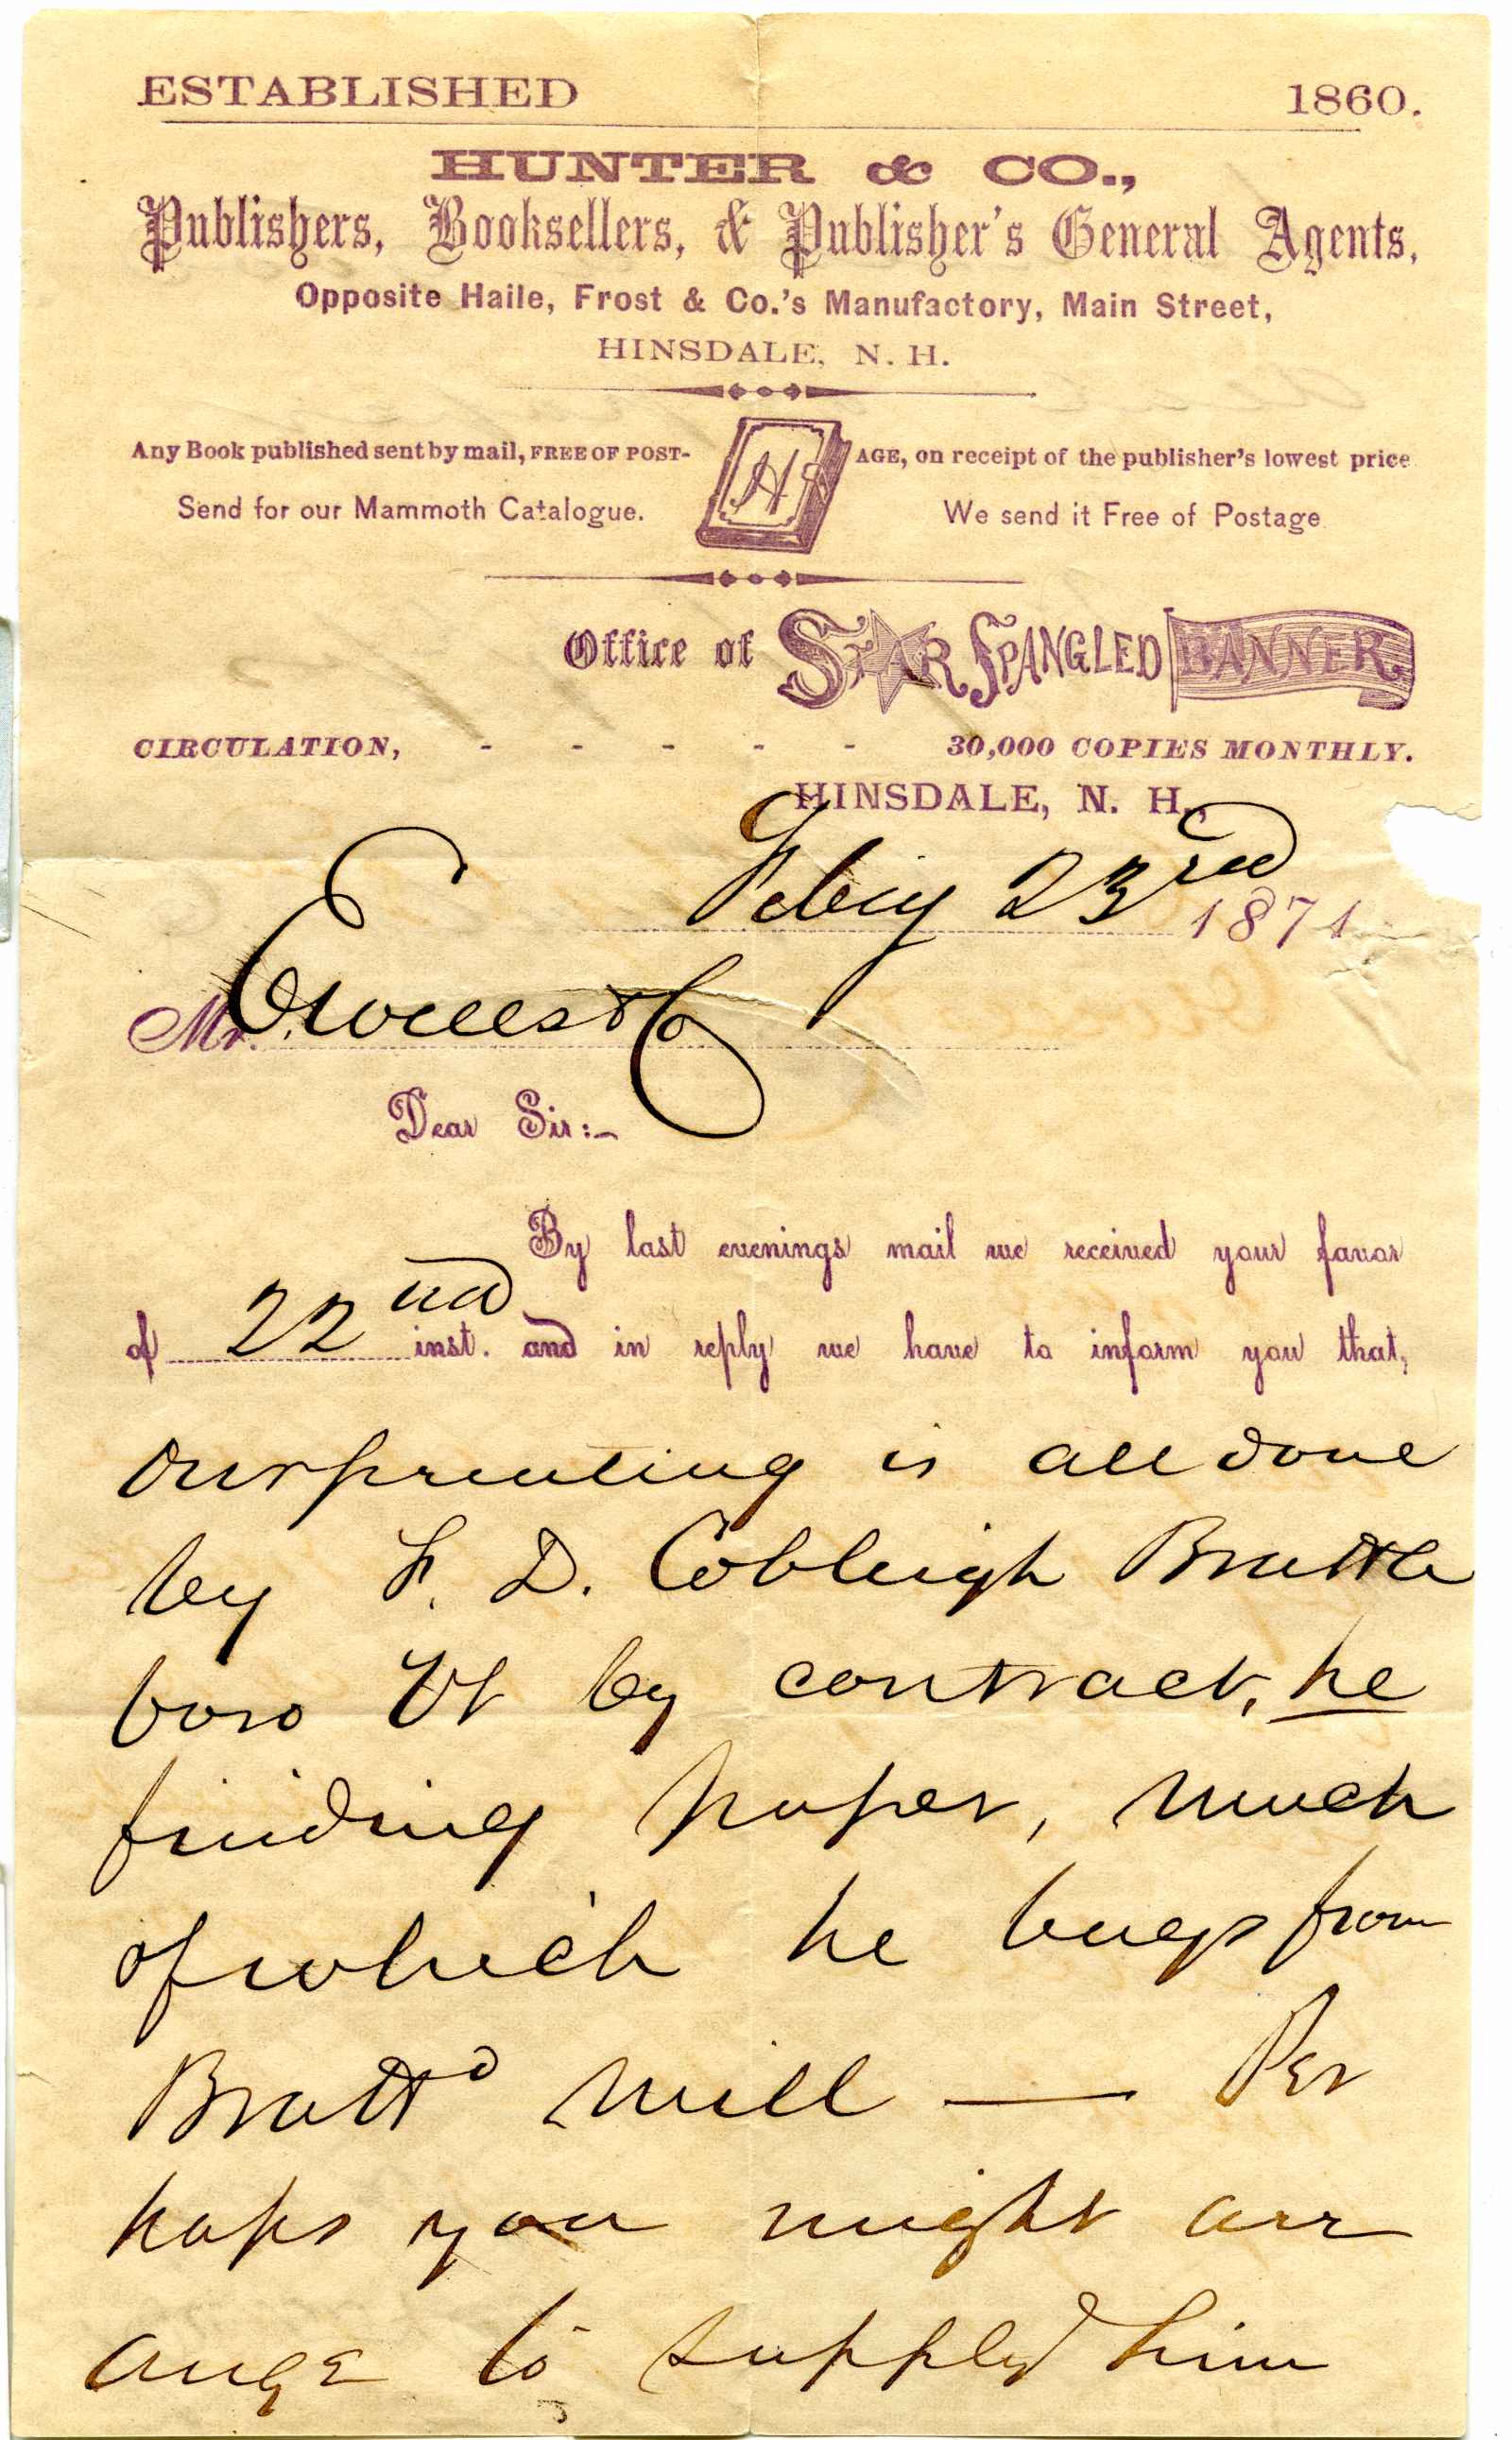 ESTABLISHED 1860.
HUNTER & CO.,
Publishers, Booksellers, & Publisher's General Agents,
Opposite Haile, Frost & Co.'s Manufactory, Main Street,
HINSDALE, N. H.
Any Book published sent by mail, FREE OF POST- AGE, on receipt of the publisher's lowest price
H &
Send for our Mammoth Catalogue. We send it Free of Postage
Office of STAR SPANGLED BANNER
CIRCULATION, - - - - - 30,000 COPIES MONTHLY.
HINSDALE, N. H.,
Feby 23rd 1871
Mr. & Co
Dear Sir:-
By last evenings mail we received your favor
of 22nd inst. and in reply we have to inform you that,
our printing is all done
by F. D. Cobleigh Brattle
boro Vt by contract, he
finding paper, much
of which he buys from
Bratto mill — Per
haps you might arr
ange to supply him